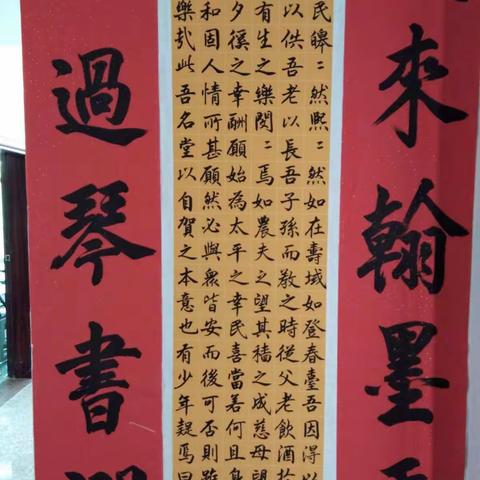 來翰墨
民皞〻然熙〻然如在壽域如登春臺吾因得以
以供吾老以長吾子孫而教之時從父老飲酒於
有生之樂閔〻焉如農夫之望其穡之成慈母望
夕徯之幸酬願始為太平之幸民喜當若何且
和固人情所甚願然必與眾皆安而後可否則雖
樂哉此吾名堂以自賀之本意也有少年疑焉曰
過琴書